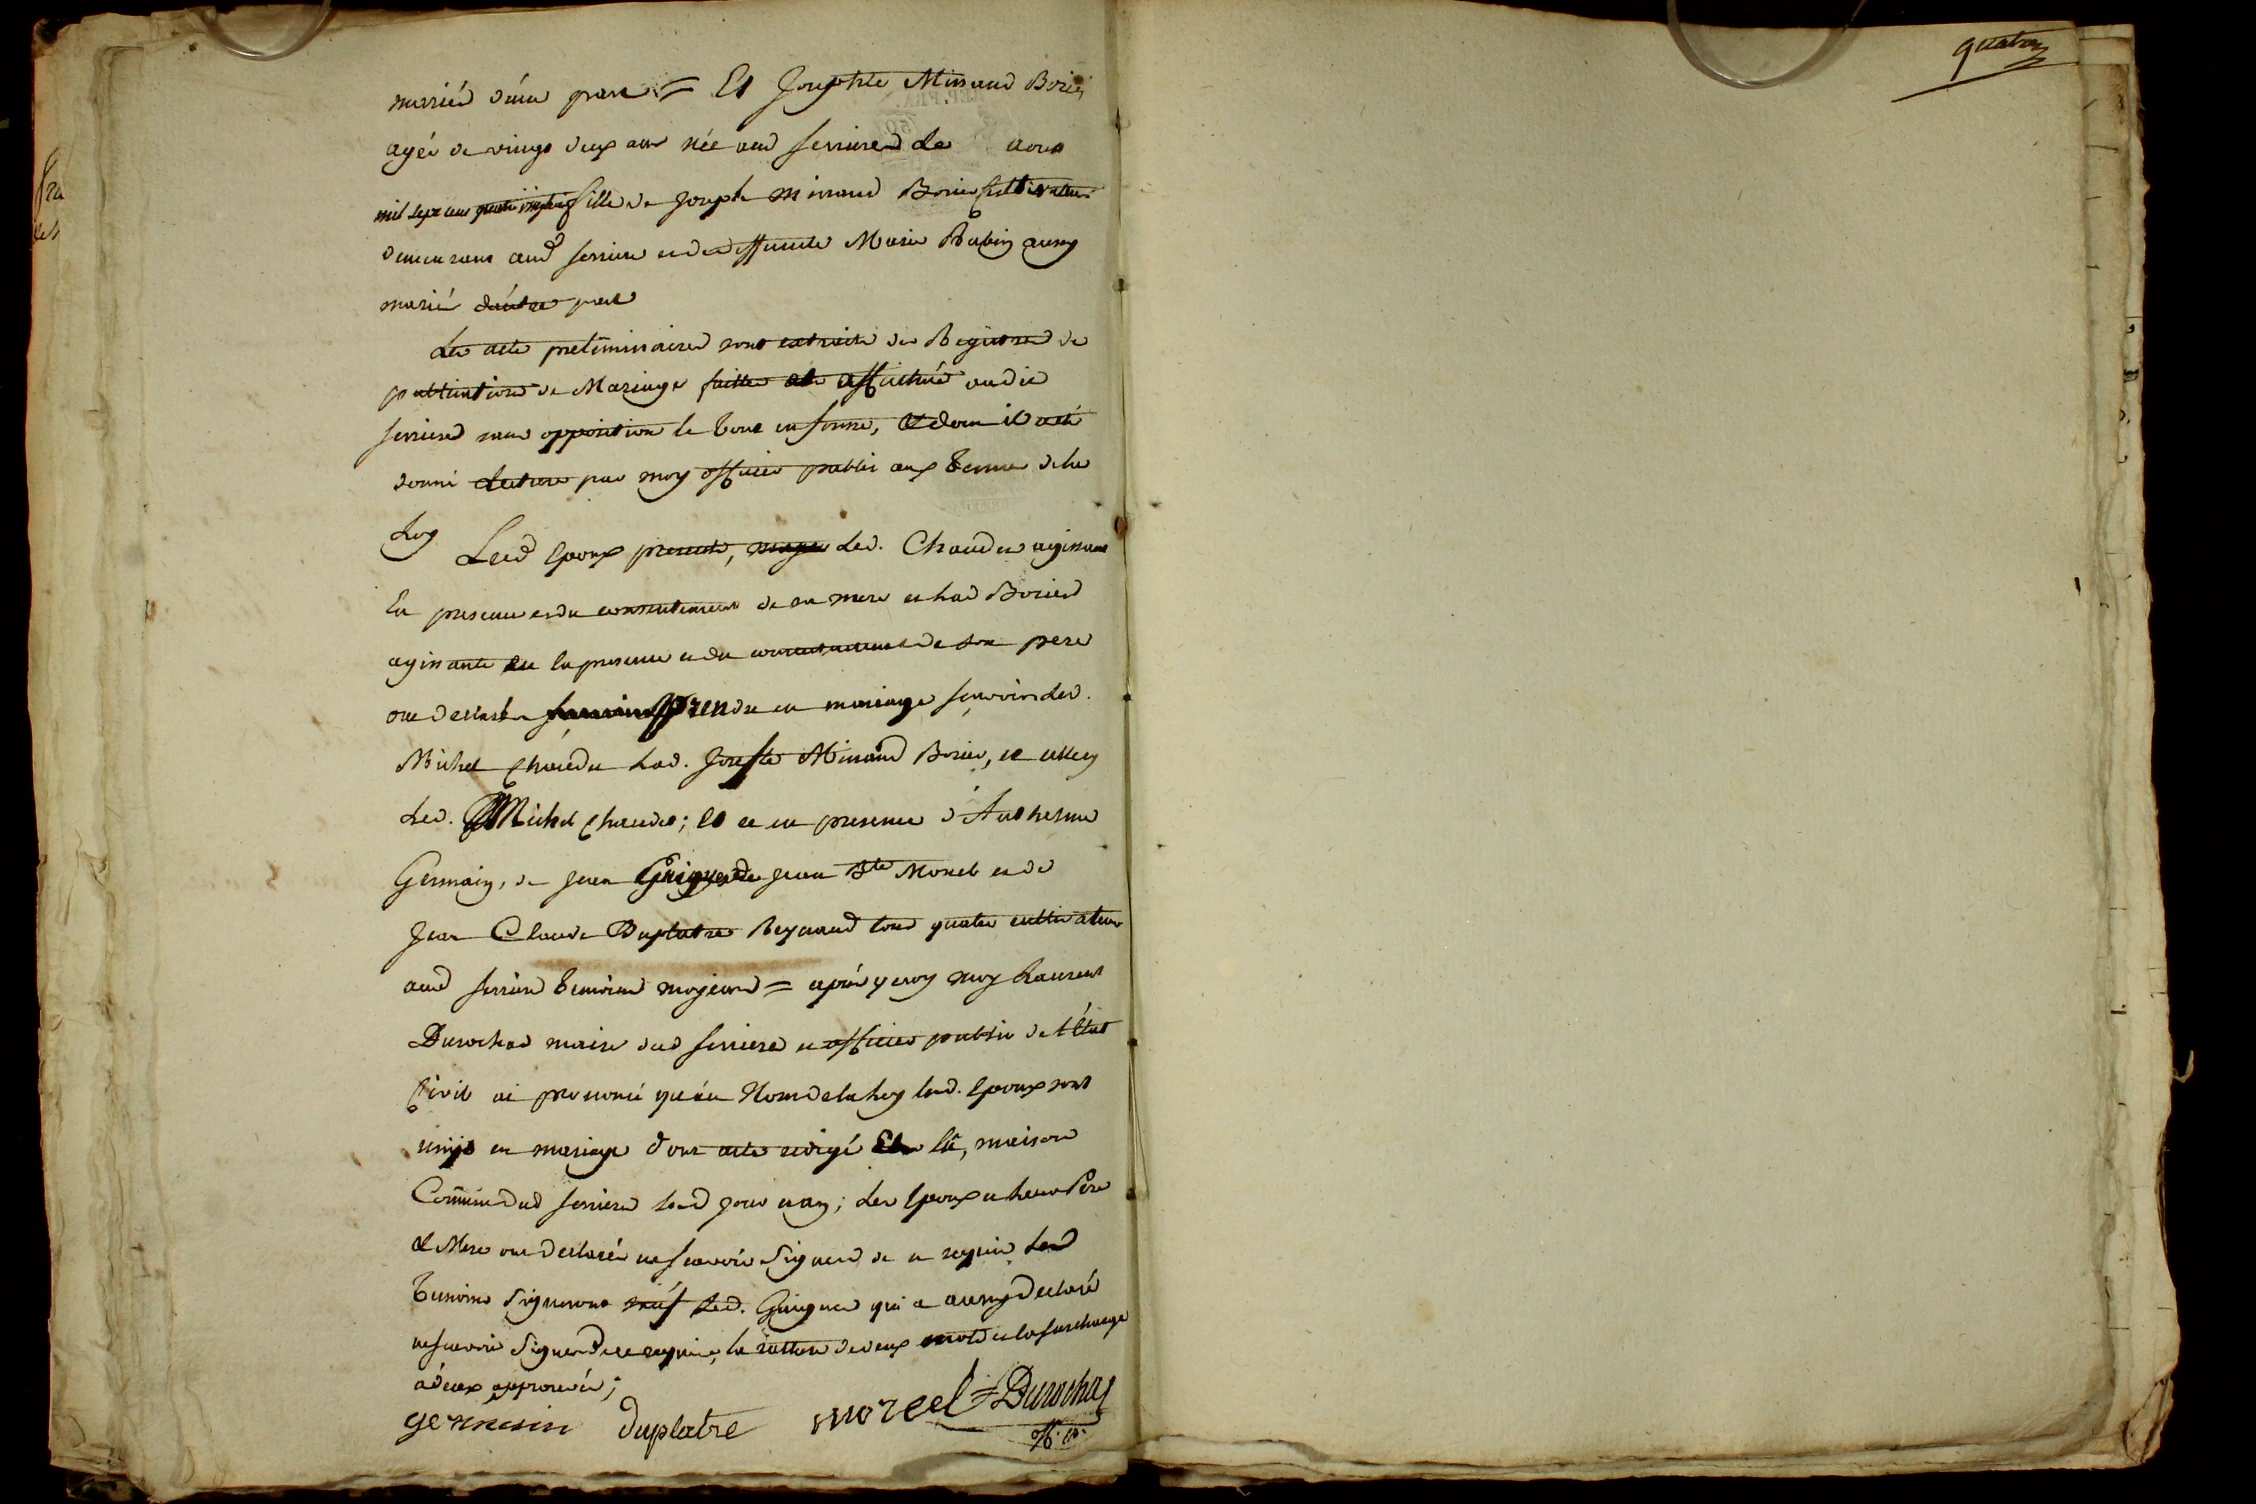 quatre
mariés d'une part = Et Josephte Minaud Borier
agée de vingt deux ans née aud Serriere de aout
mil sept cent quatre vingt fille de Joseph Minaud Borier Cultivateur
demeurant aud Serriere et de deffuncte Marie Rubin aussy
mariés d'autre part
Les actes preliminaires sont extraits des Registres de
publications de Mariage faittes et affichés audit
Serrieres sans opposition le tout en forme, et dont il a eté
donné lecture par moy officier public aux termes de la
Loy Lesd Epoux presents, led. Chaudet agissant
En presence et du consentement de sa mere et lad Borier
agissante en la presence et du consentement de son pere
ont declaré prendre en mariage scavoir led.
Michel Chaudet lad. Josephte Minaud Borier, et
led. Michel Chaudet; Et ce en presence d'Anthelme
Germain, de Jean Guigue de Jean Bte Morel et de
Jean Claude Duplatre Reynaud tous quatre cultivateurs
aud Serriere temoins majeurs = après quoy moy Laurent
Durochat maire dud Serriere et officier public de l'État
Civil ai prononcé qu'au Nom de la Loy lesd. Epoux sont
unis en mariage dont acte redigé et lû, maison
Commune dud Serriere led jour et an; Les Epoux et leurs Pere
et Mere ont declaré ne scavoir signer de ce requis les d
temoins signeront led. Guigue qui a aussy declaré
ne scavoir signer de ce requis, la rature de deux mots et la surcharge
à deux approuvée;
germain duplatre morel Durochat
off. p.